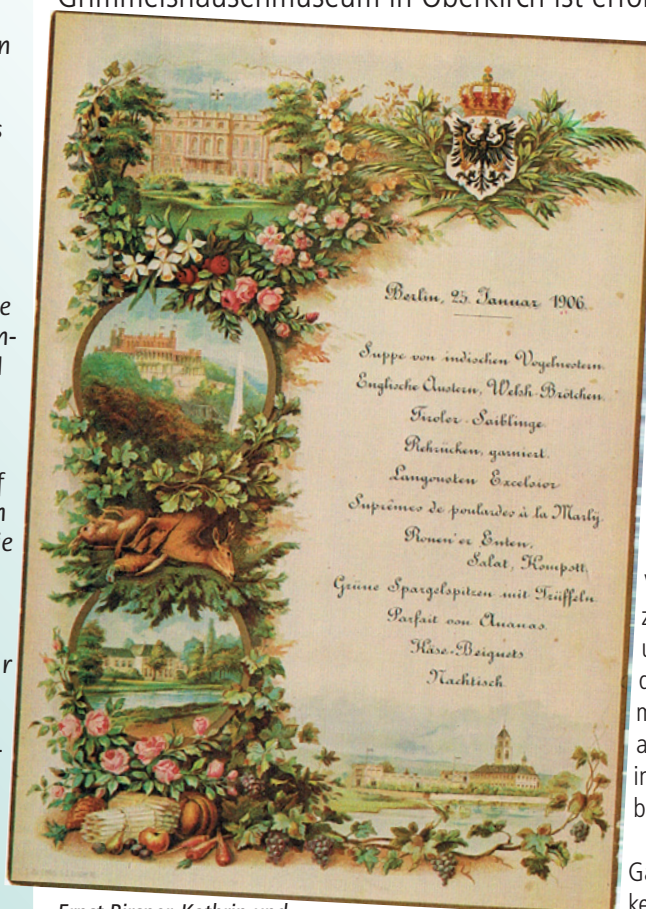 Grimmelshausenmuseum in Oberkirch ist
Berlin, 25. Januar 1906.
Suppe von indischen Vogelnestern.
Englische Austern, Welsh-Brötchen.
Tiroler-Saiblinge.
Rehrücken, garniert.
Langousten Excelsior
Suprêmes de poulardes à la Marly.
Rouen'er Enten,
Salat, Kompott.
Grüne Spargelspitzen mit Trüffeln.
Parfait von Ananas.
Käse-Beignets
Nachtisch.